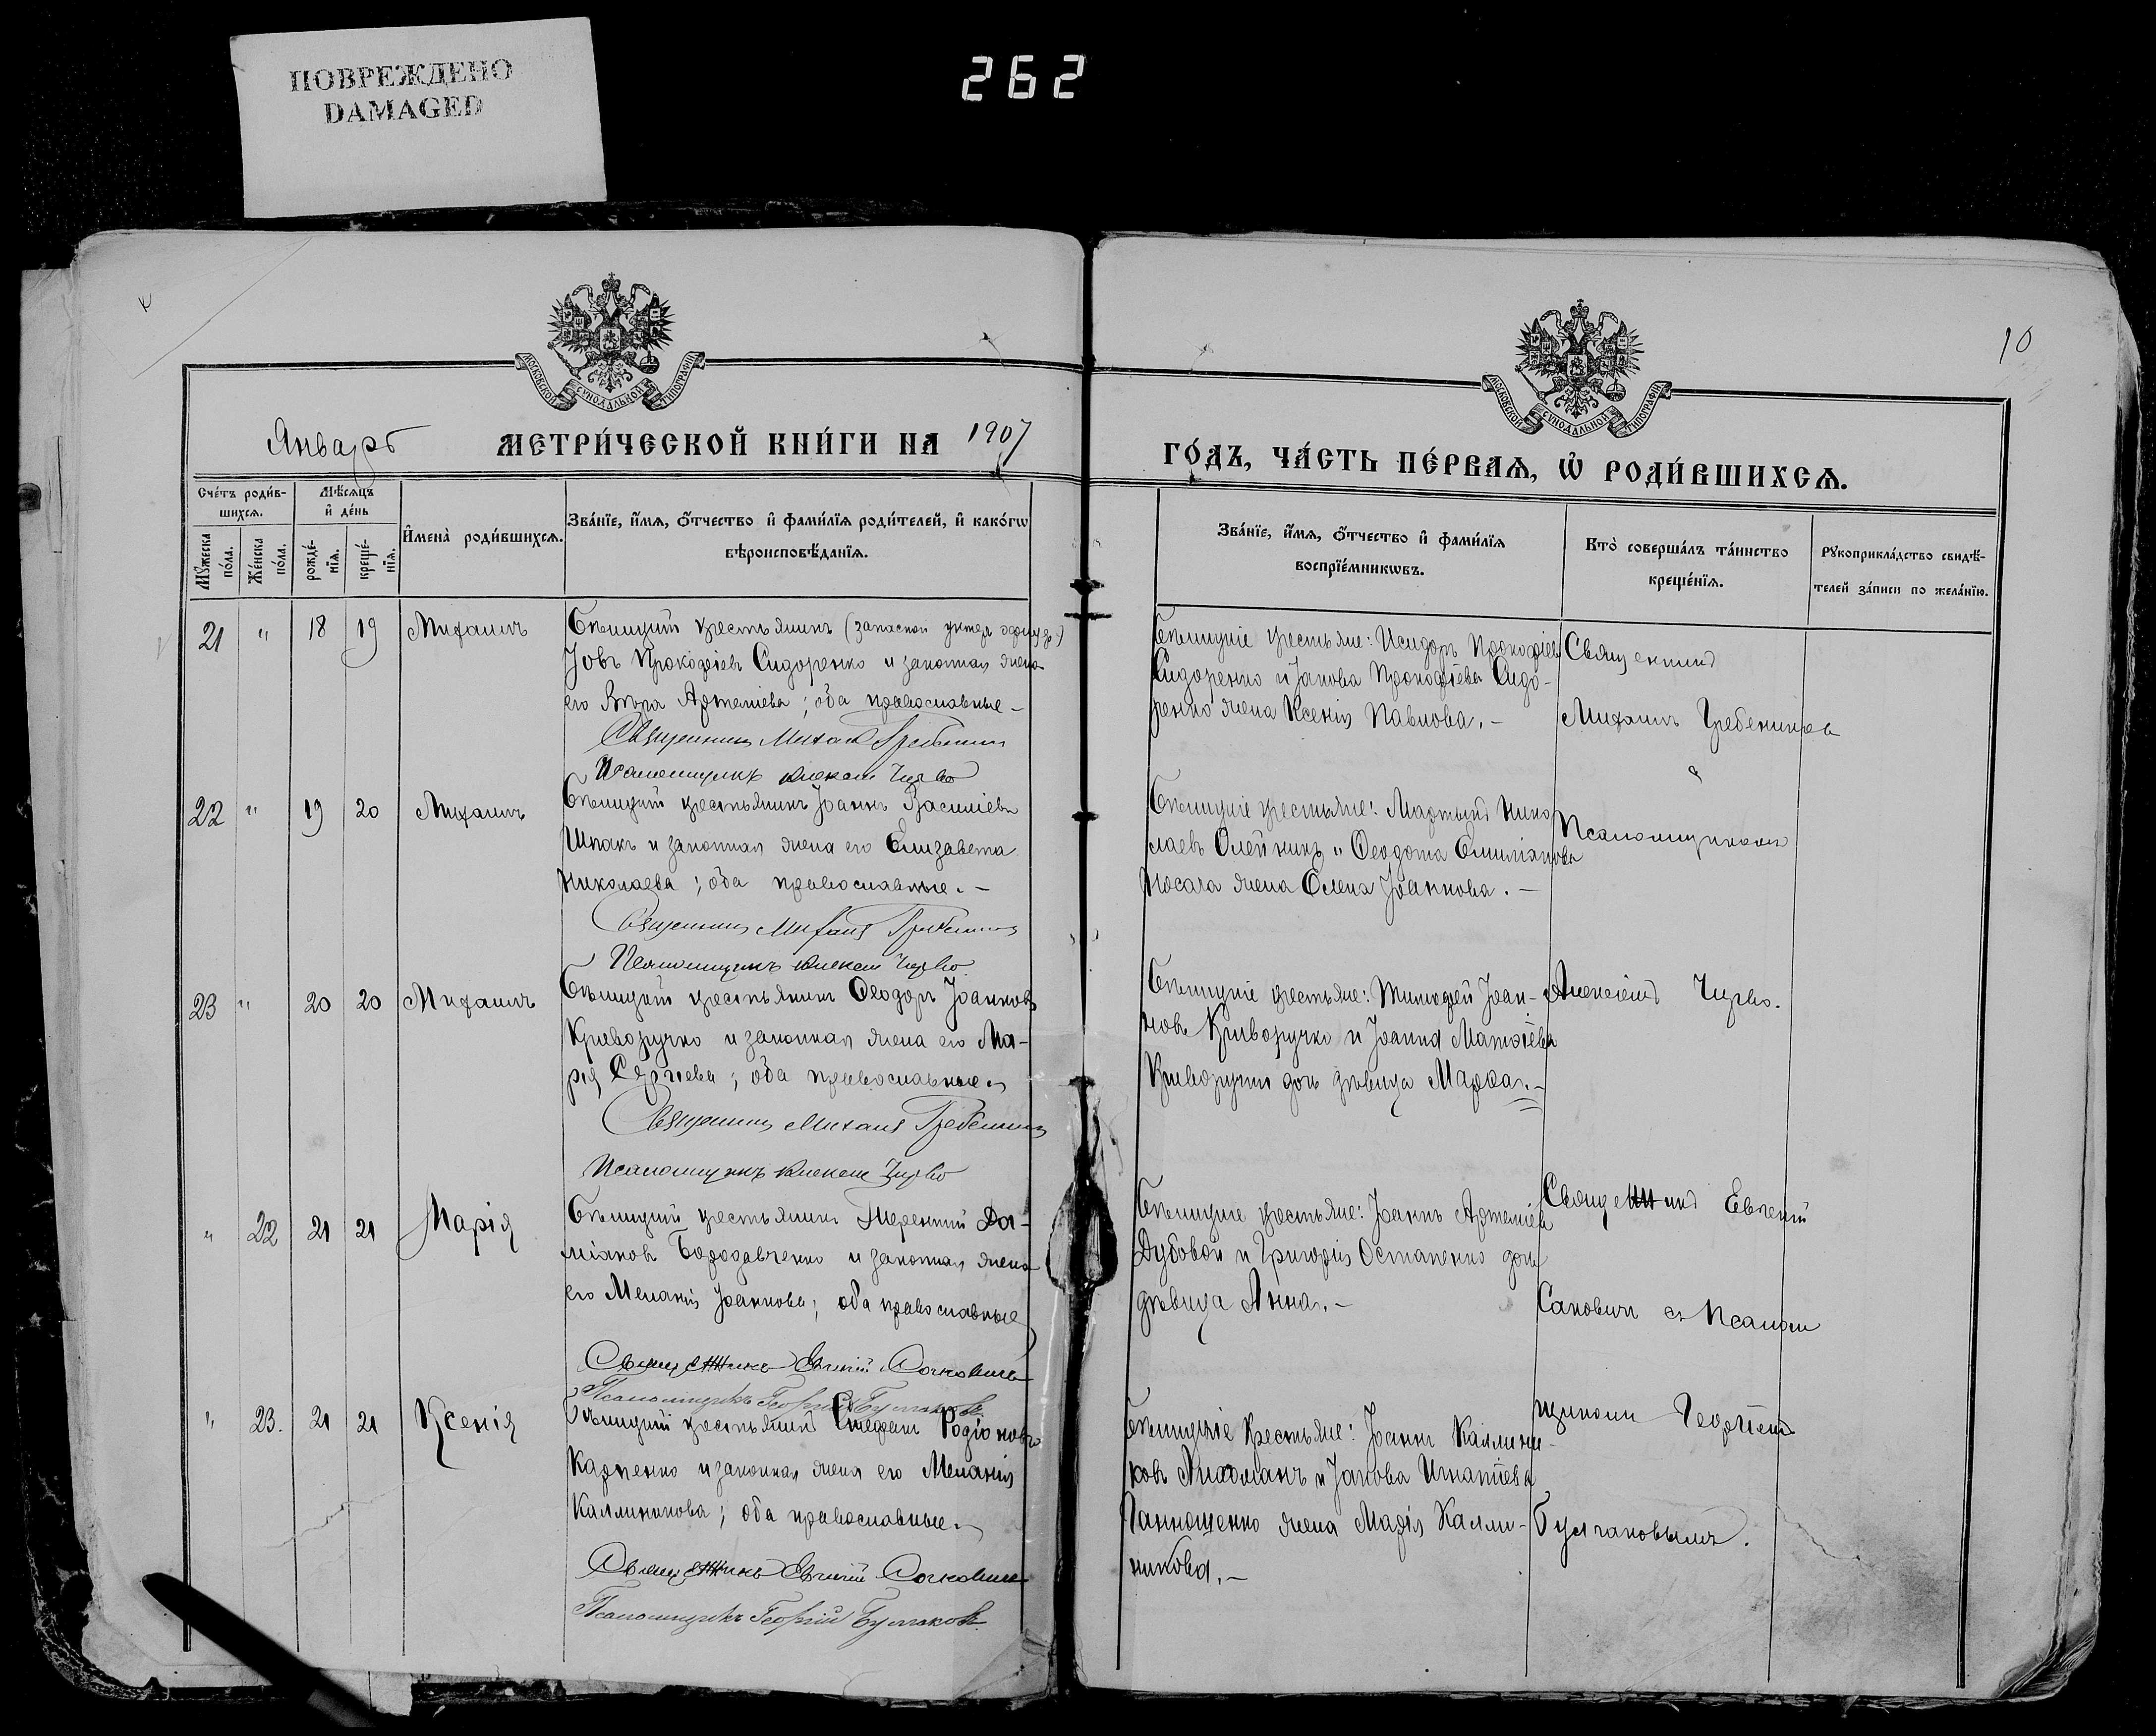 ПОВРЕЖДЕНО
DAMAGED
262
10
МОСКОВСКОЙ СѴНОДАЛЬНОЙ ТИПОГРАФІИ
МОСКОВСКОЙ СѴНОДАЛЬНОЙ ТИПОГРАФІИ
Январь МЕТРИ́ЧЕСКОЙ КНИ́ГИ НА 1907
ГО́ДЪ, ЧА́СТЬ ПЕ́РВАѦ, Ѡ҆ РОДИ́ВШИХСѦ.
Сче́тъ роди́в-
шихсѧ.
Мꙋ́жеска по́ла.
Же́нска по́ла.
Мѣ́сѧцъ
и҆ де́нь
рожде́-
нїѧ.
креще́-
нїѧ.
И҆мена̀ роди́вшихсѧ.
Зва́нїе, и҆́мѧ, ѻ҆́тчество и҆ фами́лїѧ роди́телей, и҆ како́гѡ
вѣроисповѣ́данїѧ.
Зва́нїе, и҆́мѧ, ѻ҆́тчество и҆ фами́лїѧ
воспрїе́мникѡвъ.
Кто̀ соверша́лъ та́инство
креще́нїѧ.
Рꙋкоприкла́дство свидѣ́-
телей за́писи по жела́нїю.
21 " 18 19 Михаилъ
крестьянинъ (запасной унтеръ
Іовъ Прокофіевъ Сидоренко и законная жена
его Вѣра Артеміева; оба православные –
Священникъ Михаил Гребенник
Псаломщикъ Алексей
крестьяне: Исидоръ Прокофіевъ
Сидоренко и Іакова Прокофіева Сидо-
ренко жена Ксенія Павлова. –
Священникъ
Михаилъ Гребениковъ
22 " 19 20 Михаилъ
крестьянинъ Іоаннъ Василіевъ
Шпакъ и законная жена его Елизавета
Николаева; оба православные. –
Священникъ Михаил Гребенник
Псаломщикъ Алексей
крестьяне: Мартынъ Нико
лаевъ Олейникъ и Ѳеодота Емиліанова
Носача жена Елена Іоаннова. –
и
Псаломщикомъ
23 " 20 20 Михаилъ
крестьянинъ Ѳеодоръ Іоанновъ
Криворучко и законная жена его Ма-
рія Сергіева; оба православные.
Священникъ Михаил Гребенник
Псаломщикъ Алексей
крестьяне: Тимофей Іоан-
новъ Криворучко и Іоанна Матѳіева
Криворучки дочь дѣвица Марѳа. –
Алексіемъ
" 22 21 21 Марія
крестьянинъ Терентій Да-
міановъ Бородавченко и законная жена
его Меланія Іоаннова; оба православные
Священникъ Евгеній Сачковичъ
Псаломщикъ Георгій Булгаковъ
крестьяне: Іоаннъ Артеміевъ
Дубовой и Григорія Остапенко дочь
дѣвица Анна. –
Священникъ Евгеній
съ Псалом
" 23. 21 21 Ксенія
крестьянинъ Стефанъ Родіоновъ
Карпенко и законная жена его Меланія
Каллиникова; оба православные.
Священникъ Евгеній Сачковичъ
Псаломщикъ Георгій Булгаковъ
Крестьяне: Іоаннъ Каллини-
ковъ и Іакова Игнатіева
жена Марія Калли-
никова. –
щикомъ Георгіемъ
Булгаковымъ.